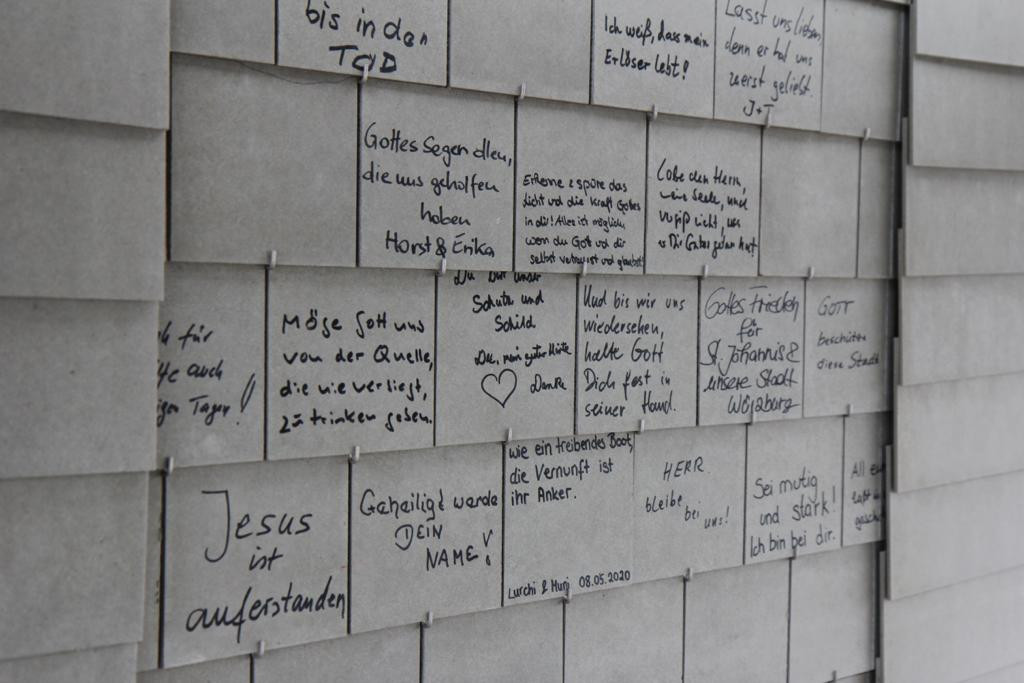 bis in den
TOD
Ich weiß, dass mein
Erlöser lebt!
Lasst uns lieben,
denn er hat uns
zuerst geliebt.
J+T
Gottes Segen allen,
die uns geholfen
haben
Horst & Erika
Erkenne & spüre das
Licht und die Kraft Gottes
in dir! Alles ist möglich,
wenn du Gott und dir
selbst vertraust und glaubst!
Lobe den Herrn,
meine Seele, und
vergiß nicht, was
er Dir Gutes getan hat
für
auch
Tagen!
Möge Gott uns
von der Quelle,
die nie versiegt,
zu trinken geben.
Du bist unser
Schutz und
Schild
Du, mein guter Hirte
Danke
Und bis wir uns
wiedersehen,
halte Gott
Dich fest in
seiner Hand.
Gottes Frieden
für
St. Johannis &
unsere Stadt
Würzburg
GOTT
beschütze
diese Stadt
Jesus
ist
auferstanden
Geheiligt werde
DEIN
NAME!
wie ein treibendes Boot,
die Vernunft ist
ihr Anker.
Lurchi & Murj 08.05.2020
HERR
bleibe bei
uns!
Sei mutig
und stark!
Ich bin bei dir.
All
laßt